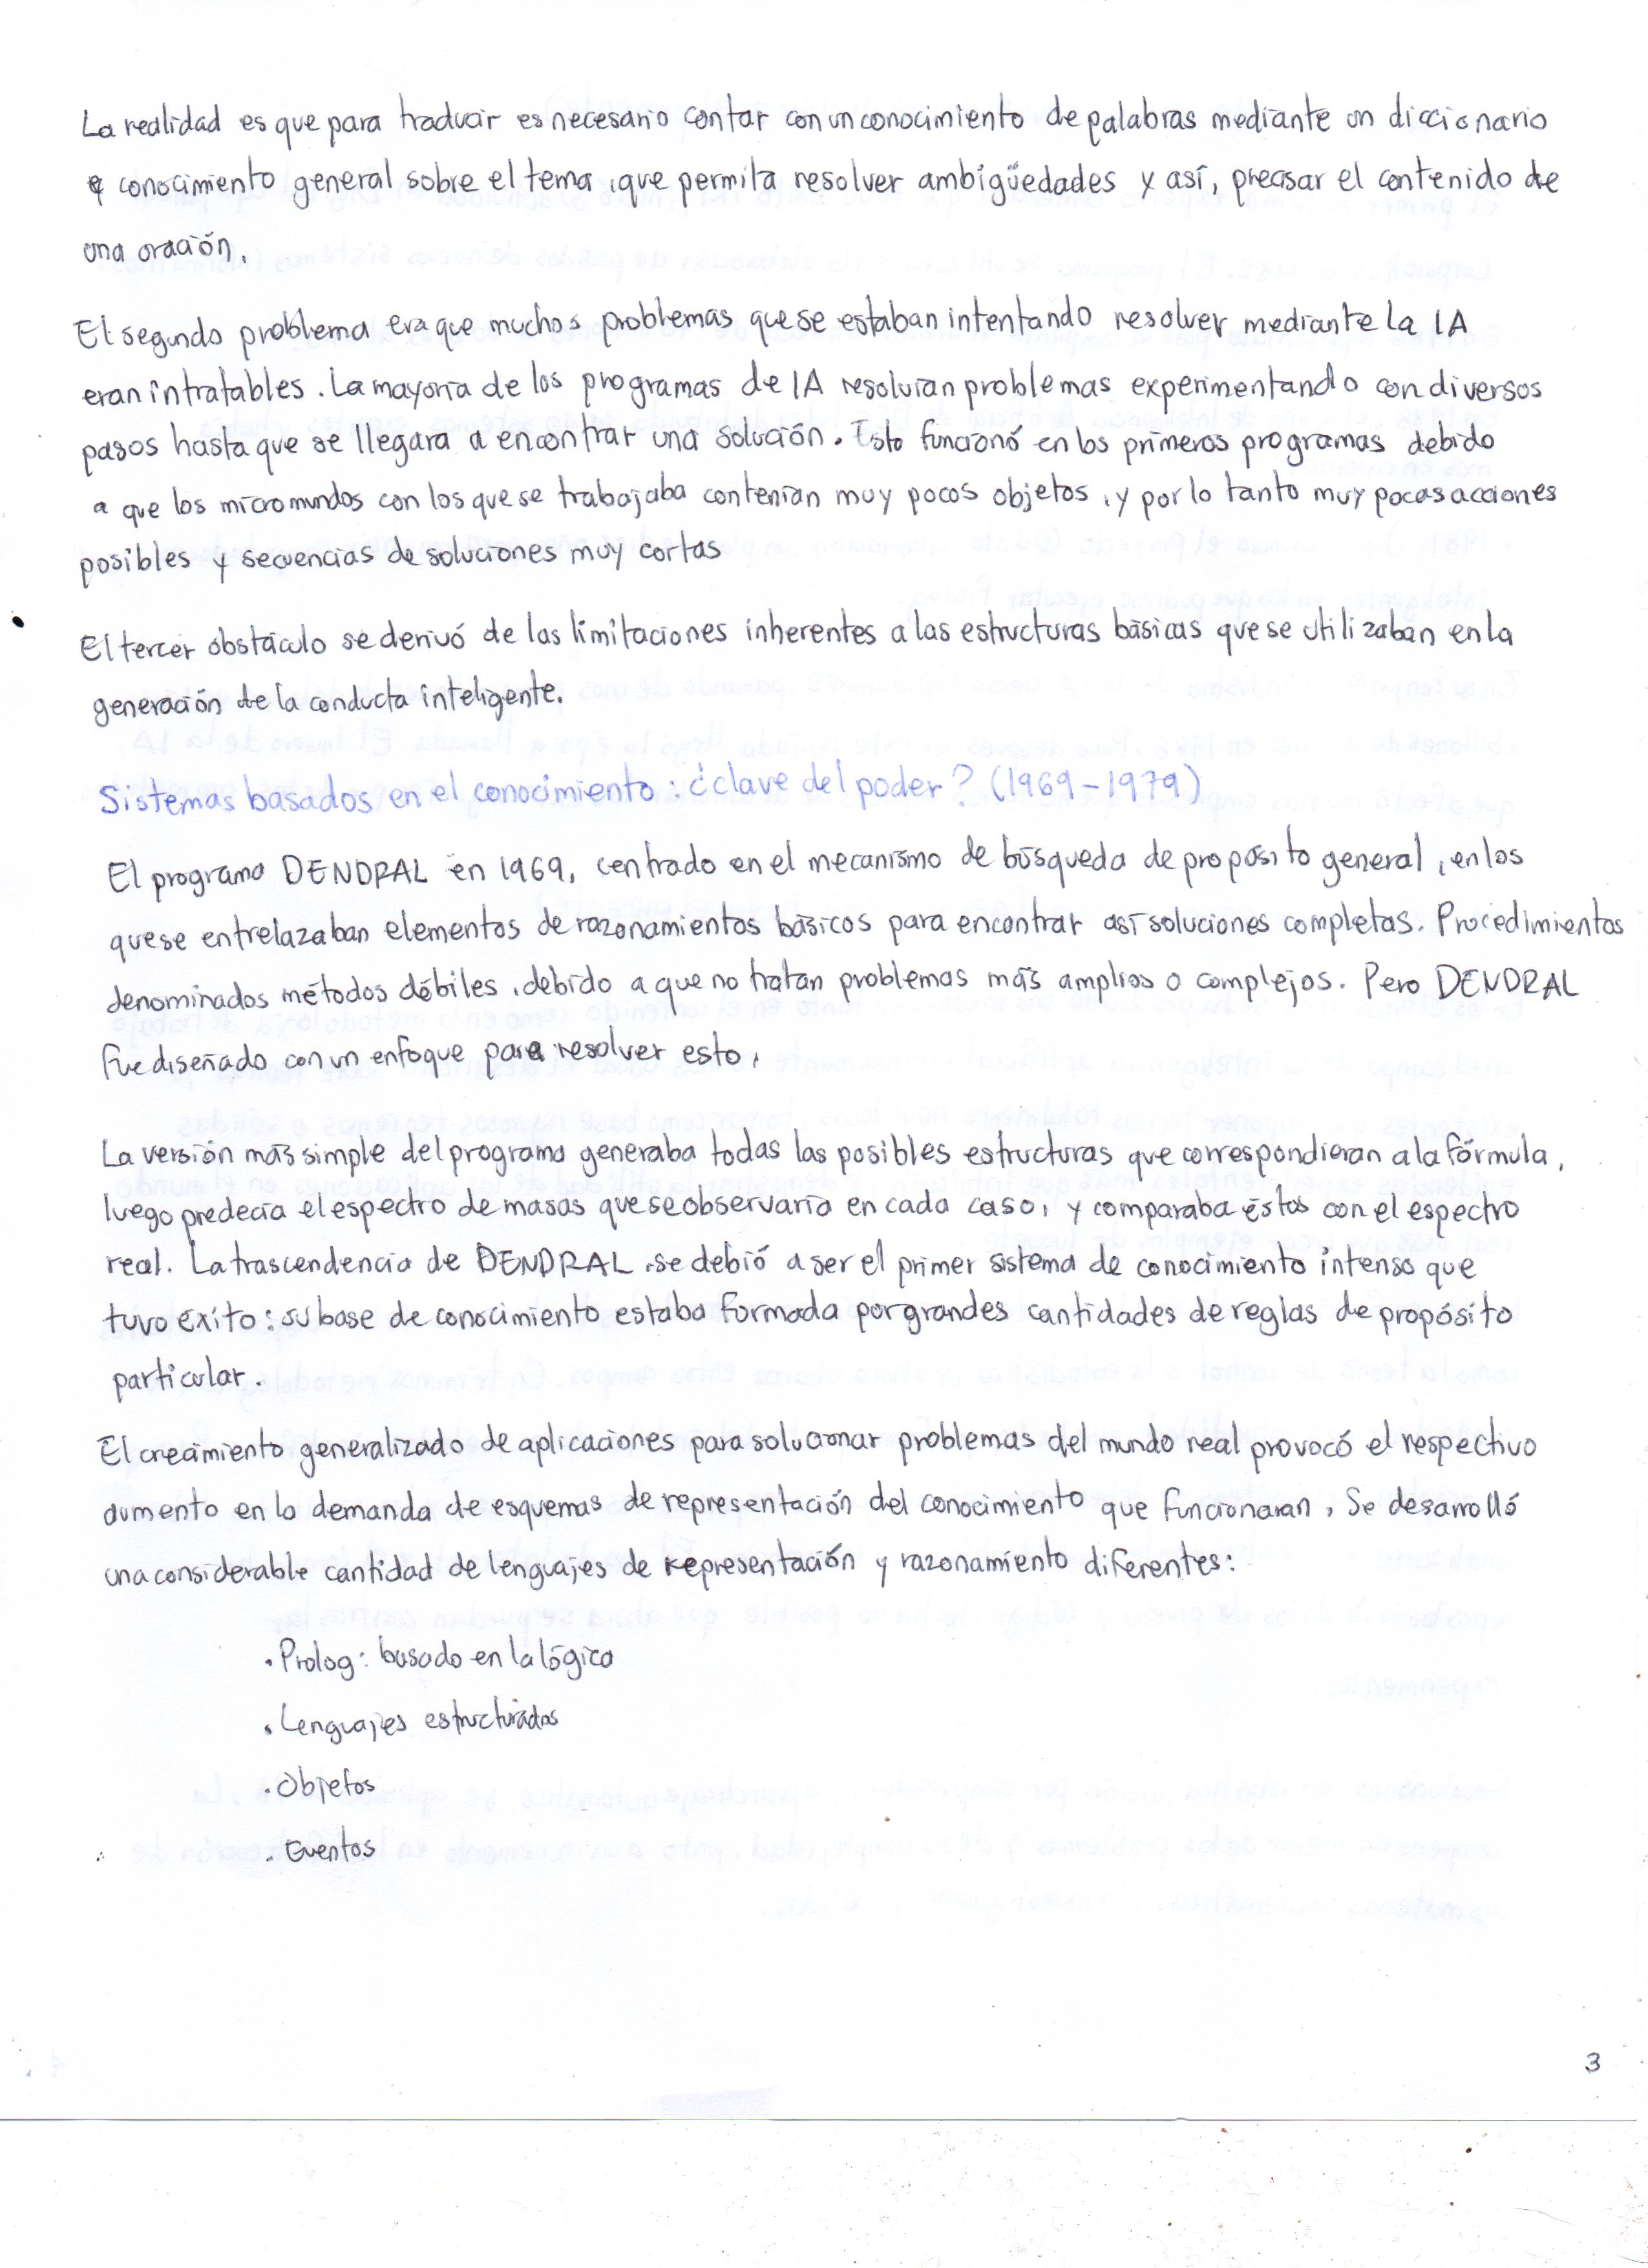 La realidad es que para traducir es necesario contar con un conocimiento de palabras mediante un diccionario
y conocimiento general sobre el tema, que permita resolver ambigüedades y así, precisar el contenido de
una oración.
El segundo problema era que muchos problemas que se estaban intentando resolver mediante la IA
eran intratables. La mayoría de los programas de IA resolvían problemas experimentando con diversos
pasos hasta que se llegara a encontrar una solución. Esto funcionó en los primeros programas debido
a que los micromundos con los que se trabajaba contenían muy pocos objetos, y por lo tanto muy pocas acciones
posibles y secuencias de soluciones muy cortas
El tercer obstáculo se derivó de las limitaciones inherentes a las estructuras básicas que se utilizaban en la
generación de la conducta inteligente.
Sistemas basados en el conocimiento: ¿clave del poder? (1969-1979)
El programa DENDRAL en 1969, centrado en el mecanismo de búsqueda de propósito general, en los
que se entrelazaban elementos de razonamientos básicos para encontrar así soluciones completas. Procedimientos
denominados métodos débiles, debido a que no tratan problemas más amplios o complejos. Pero DENDRAL
fue diseñado con un enfoque para resolver esto.
La versión más simple del programa generaba todas las posibles estructuras que correspondieran a la fórmula,
luego predecía el espectro de masas que se observaría en cada caso, y comparaba éstos con el espectro
real. La trascendencia de DENDRAL, se debió a ser el primer sistema de conocimiento intenso que
tuvo éxito: su base de conocimiento estaba formada por grandes cantidades de reglas de propósito
particular.
El crecimiento generalizado de aplicaciones para solucionar problemas del mundo real provocó el respectivo
aumento en la demanda de esquemas de representación del conocimiento que funcionaran, Se desarrolló
una considerable cantidad de lenguajes de representación y razonamiento diferentes:
• Prolog: basado en la lógica
• Lenguajes estructurados
• Objetos
• Eventos
3